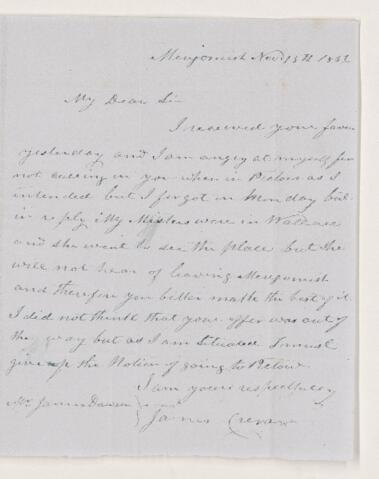 Merigomish Nov 13th 1862
My Dear Sir
I received your favor
yesterday and I am angry at myself for
not calling on you when in Pictou as I
intended but I forgot in Monday but
in reply My Mistres were in Wallace
and she went to see the place but she
will not hear of leaving Merigomish
and therefore you better make the best of it
I did not think that your offer was out of
the way but as I am Situated I must
give up the Notion of going to Pictou
I am yours respectfully
Mr James Dawson
James Crerar